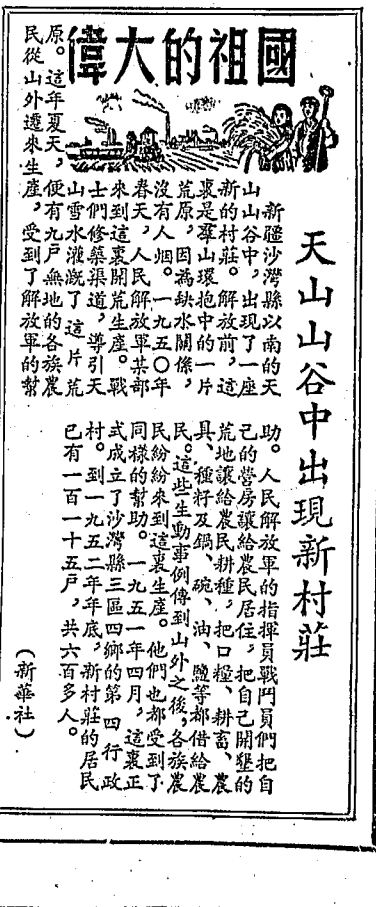 偉大的祖國
天山山谷中出現新村莊
新疆沙灣縣以南的天
山山谷中，出現了一座
新的村莊。解放前，這
裏是羣山環抱中的一片
荒原，因為缺水關係，
沒有人烟。一九五〇年
春天，人民解放軍某部
來到這裏開荒生產。戰
士們修築渠道，導引天
山雪水灌溉了這片荒
原。這年夏天，便有九戶無地的各族農
民從山外遷來生產，受到了解放軍的幫
助。人民解放軍的指揮員戰鬥員們把自
己的營房讓給農民居住，把自己開墾的
荒地讓給農民耕種，把口糧、耕畜、農
具、種籽及鍋、碗、油、鹽等都借給農
民。這些生動事例傳到山外之後，各族農
民紛紛來到這裏生產。他們也都受到了
同樣的幫助。一九五一年四月，這裏正
式成立了沙灣縣三區四鄉的第四行政
村。到一九五二年年底，新村莊的居民
已有一百一十五戶，共六百多人。
（新華社）